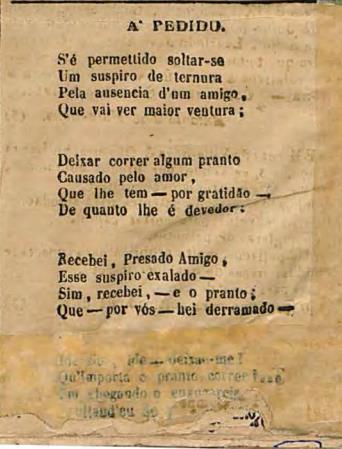 A' PEDIDO.
S'é permettido soltar-se
Um suspiro de ternura
Pela ausencia d'um amigo,
Que vai ver maior ventura;
Deixar correr algum pranto
Causado pelo amor,
Que lhe tem — por gratidão —
De quanto lhe é devedor:
Recebei, Presado Amigo,
Esse suspiro exalado —
Sim, recebei, — e o pranto;
Que — por vós — hei derramado —
ide — deixai-me!
Qu'importa o pranto correr
chegando o